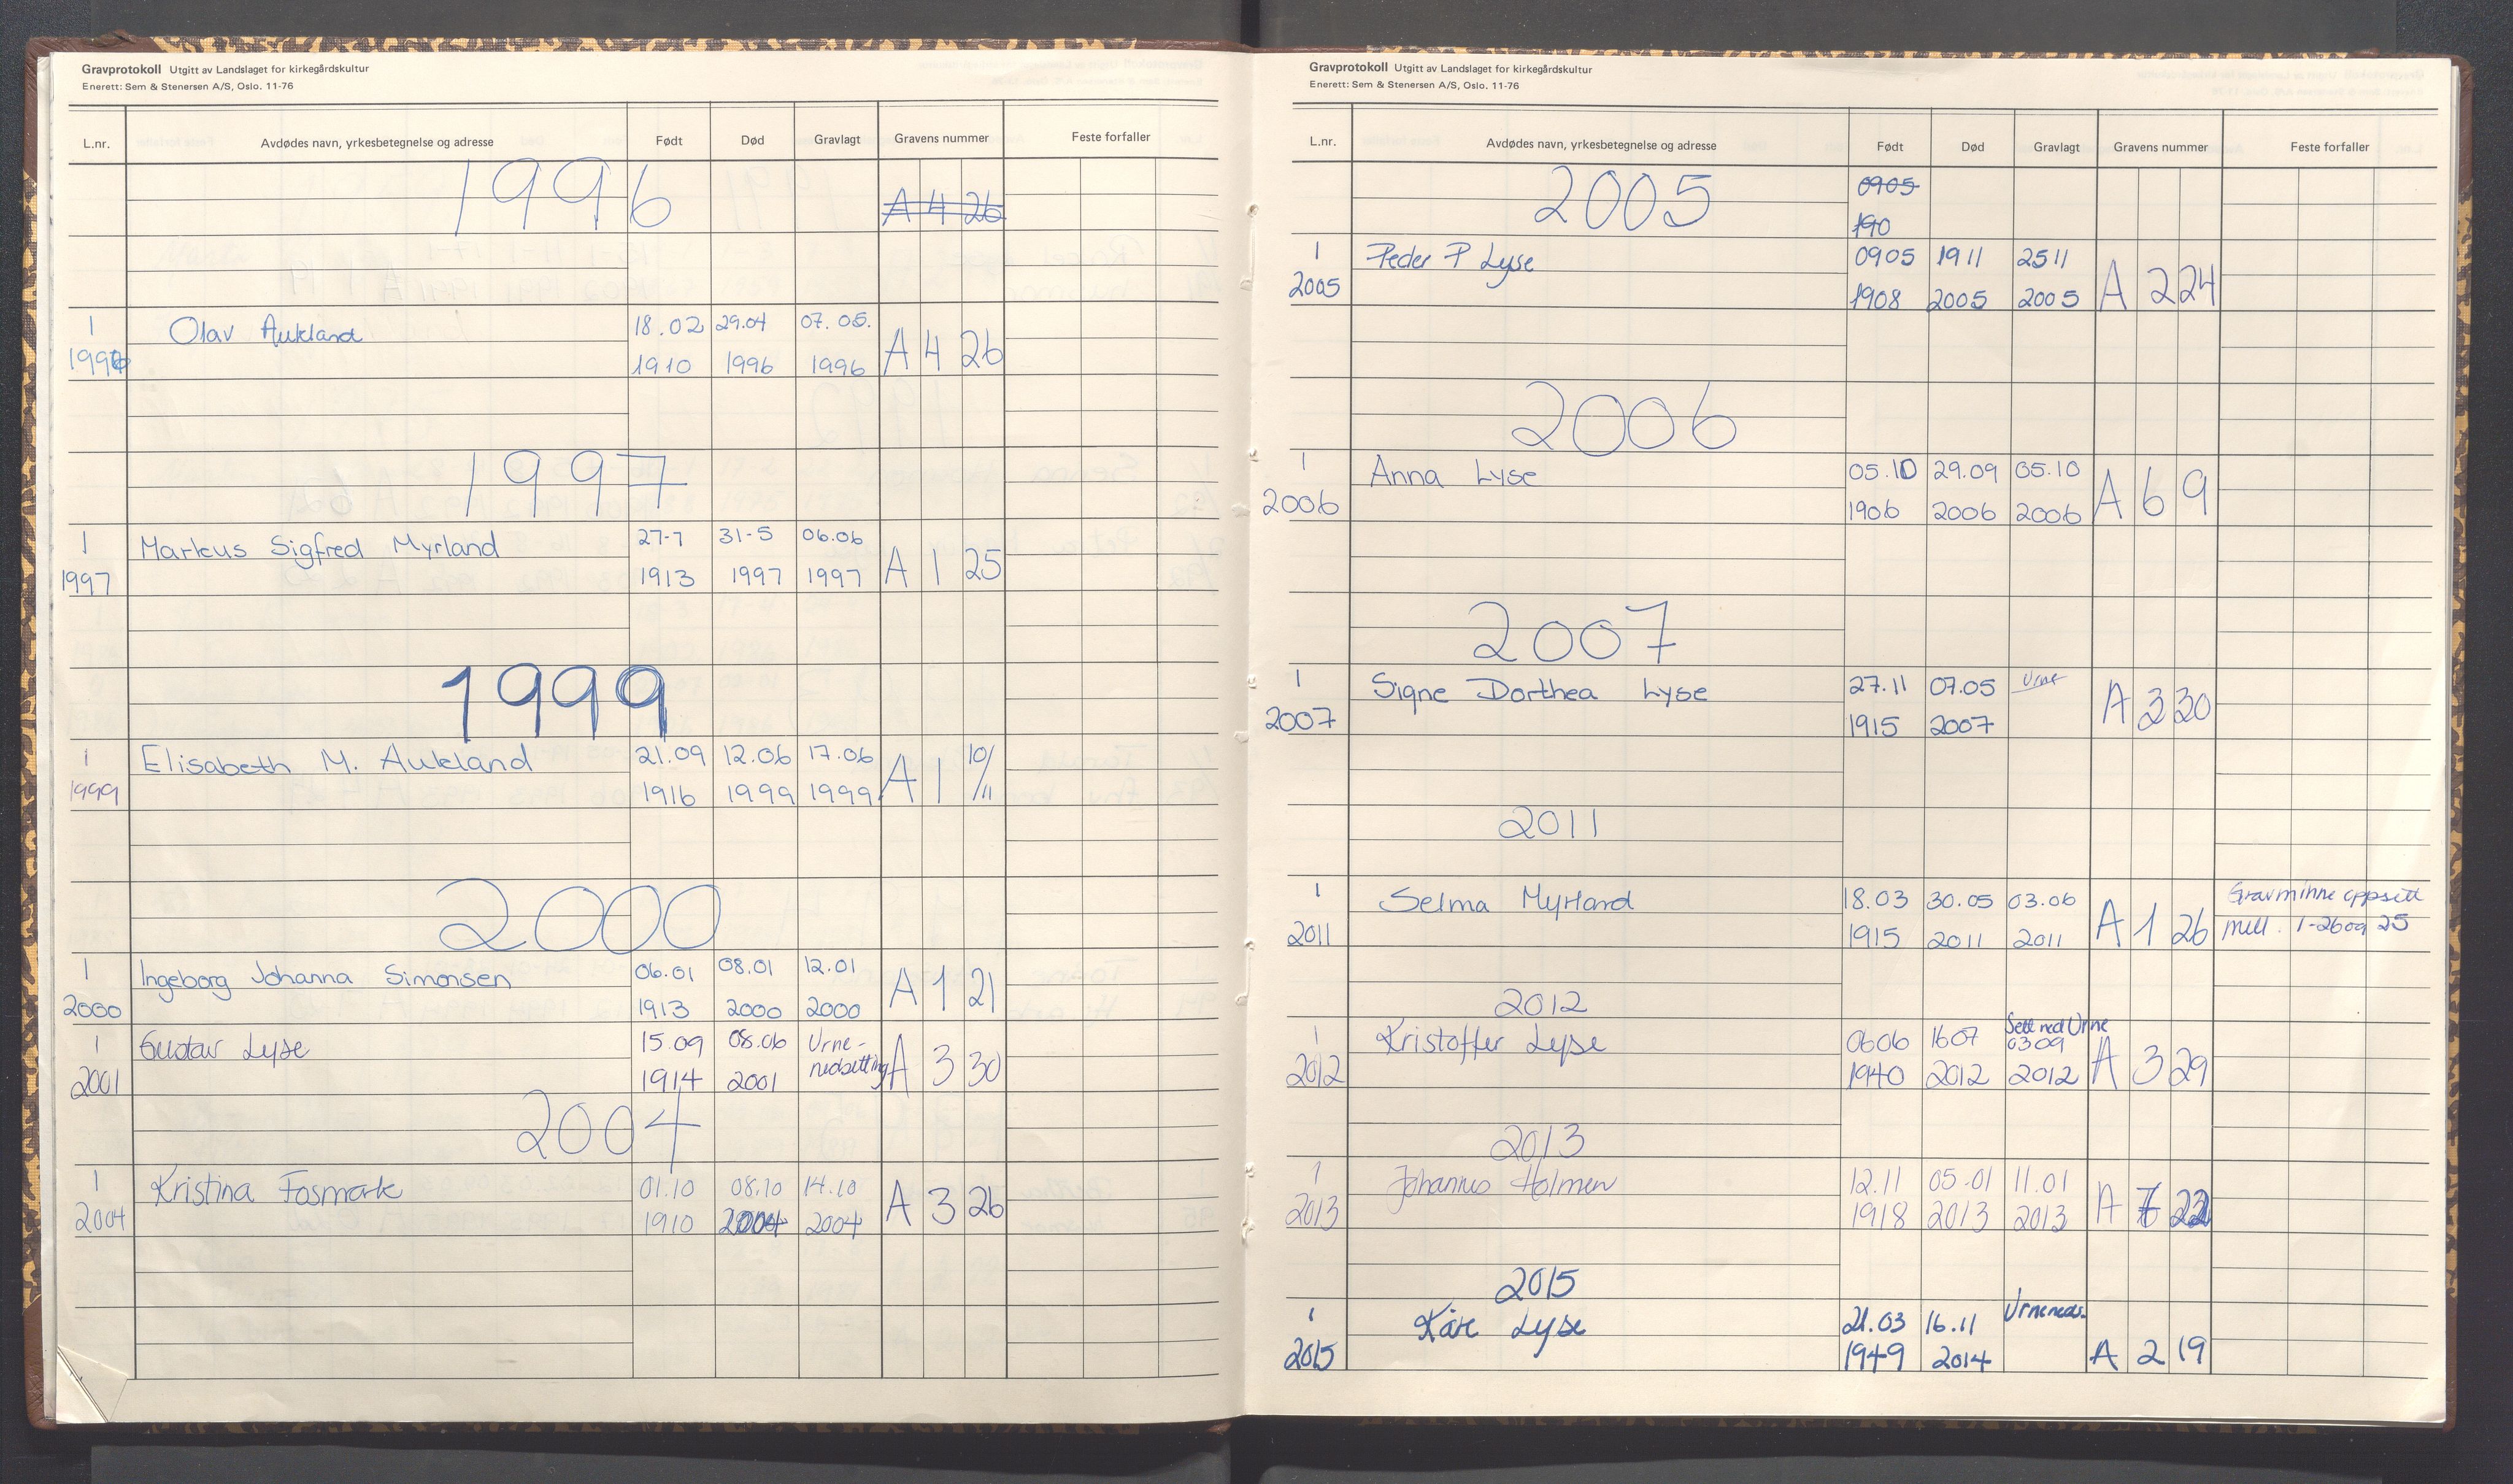 Gravprotokoll Utgitt av Landslaget for kirkegårdskultur
Enerett: Sem & Stenersen A/S, Oslo. 11-76
L.nr. Avdødes navn, yrkesbetegnelse og adresse Født Død Gravlagt Gravens nummer Feste forfaller
1996 A 4 26
1 Olav Aukland 18.02 29.04 07.05. A 4 26
1996 1910 1996 1996
1997
1 Markus Sigfred Myrland 27-7 31-5 06.06 A 1 25
1997 1913 1997 1997
1999
1 Elisabeth M. Aukland 21.09 12.06 17.06 A 1 10/11
1999 1916 1999 1999
2000
1 Ingeborg Johanna Simonsen 06.01 08.01 12.01 A 1 21
2000 1913 2000 2000
1 Gustav Lyse 15.09 08.06 Urne- A 3 30
2001 1914 2001 nedsetting
2004
1 Kristina Fosmark 01.10 08.10 14.10 A 3 26
2004 1910 2004 2004
Gravprotokoll Utgitt av Landslaget for kirkegårdskultur
Enerett: Sem & Stenersen A/S, Oslo. 11-76
L.nr. Avdødes navn, yrkesbetegnelse og adresse Født Død Gravlagt Gravens nummer Feste forfaller
2005 0905
190
1 Peder P Lyse 0905 1911 2511 A 2 24
2005 1908 2005 2005
2006
1 Anna Lyse 05.10 29.09 05.10 A 6 9
2006 1906 2006 2006
2007
1 Signe Dorthea Lyse 27.11 07.05 Urne A 3 30
2007 1915 2007
2011
1 Selma Myrland 18.03 30.05 03.06 A 1 26 Gravminne oppsett
2011 1915 2011 2011 mell. 1-26 og 25
2012
1 Kristoffer Lyse 0606 1607 Sett ned Urne 0309 A 3 29
2012 1940 2012 2012
2013
1 Johannes Holmen 12.11 05.01 11.01 A 22
2013 1918 2013 2013
2015
1 Kåre Lyse 21.03 16.11 Urneneds. A 2 19
2015 1949 2014